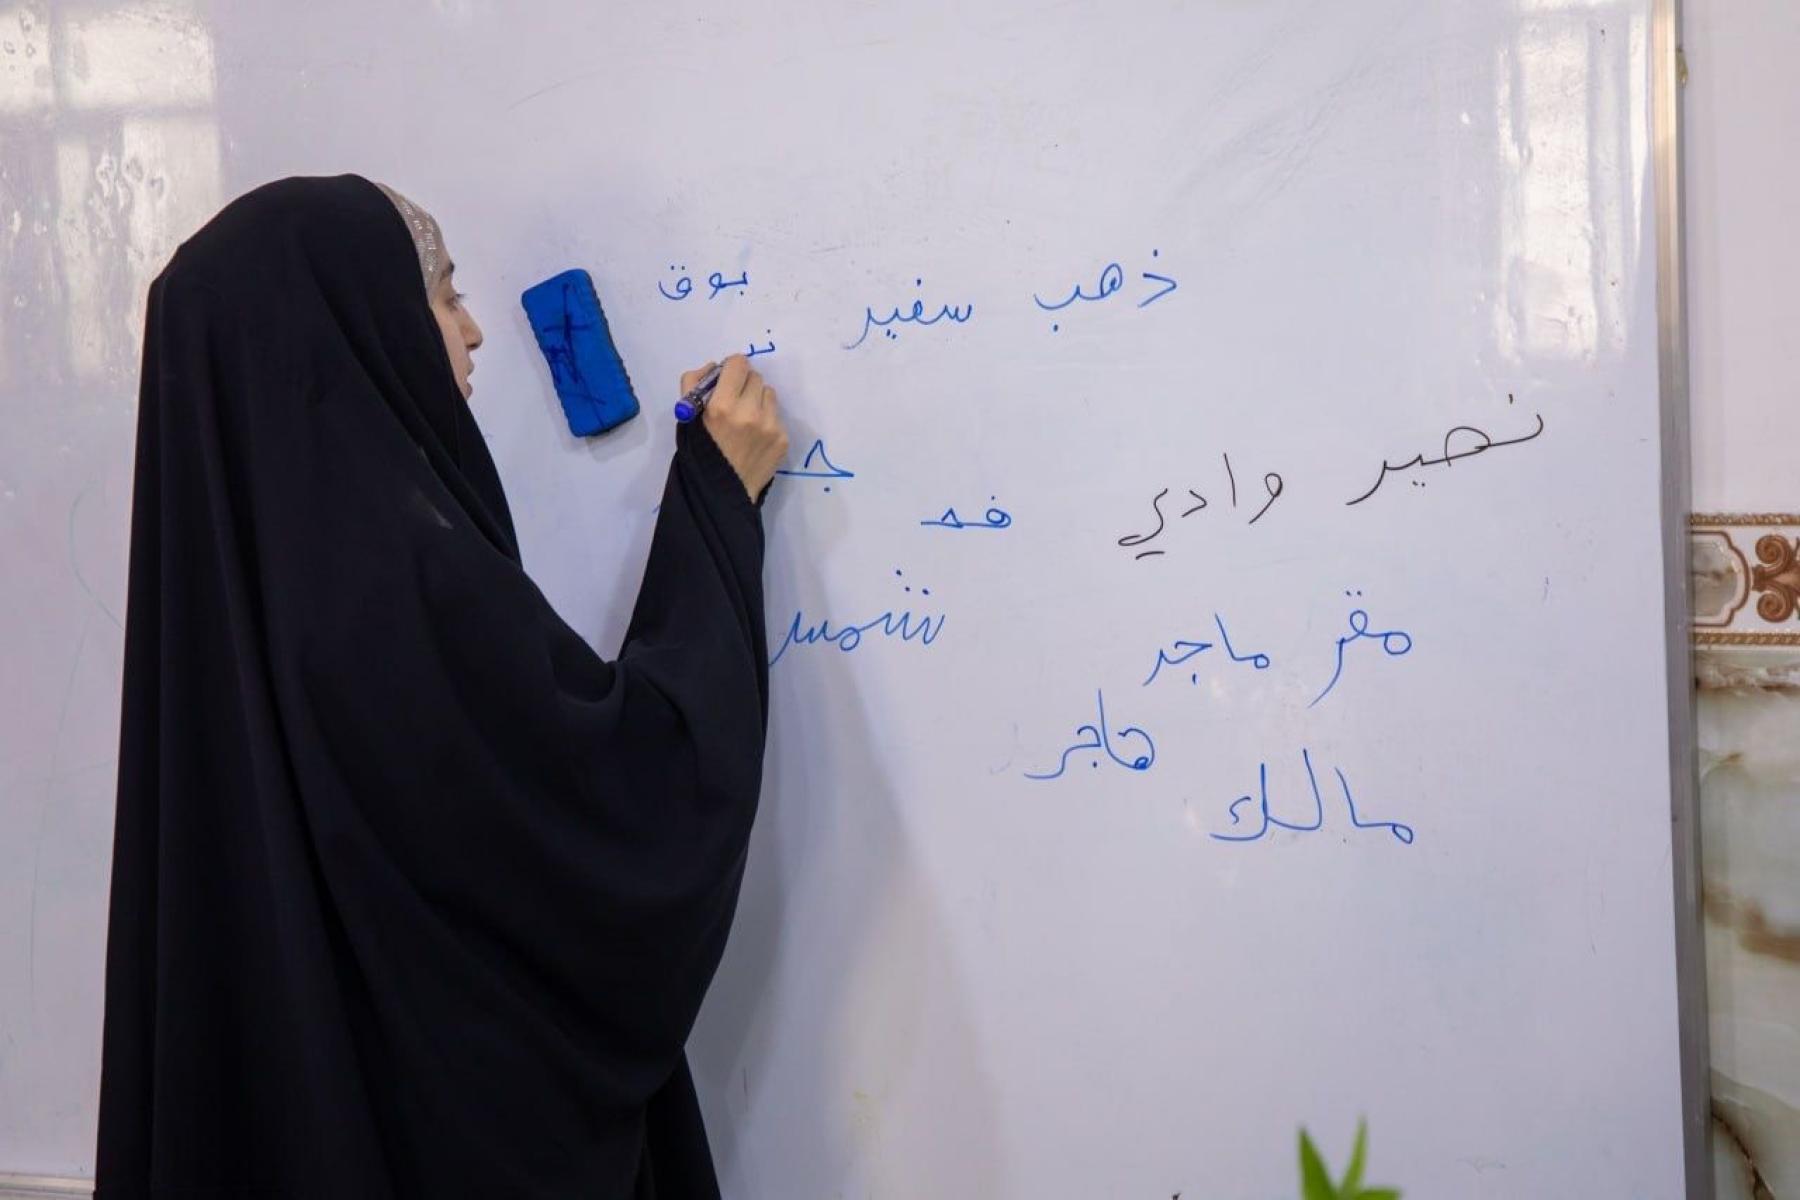 ذهب سفير بوق
نصير وادي
شمس
مقر ماجد
هاجر
مالك